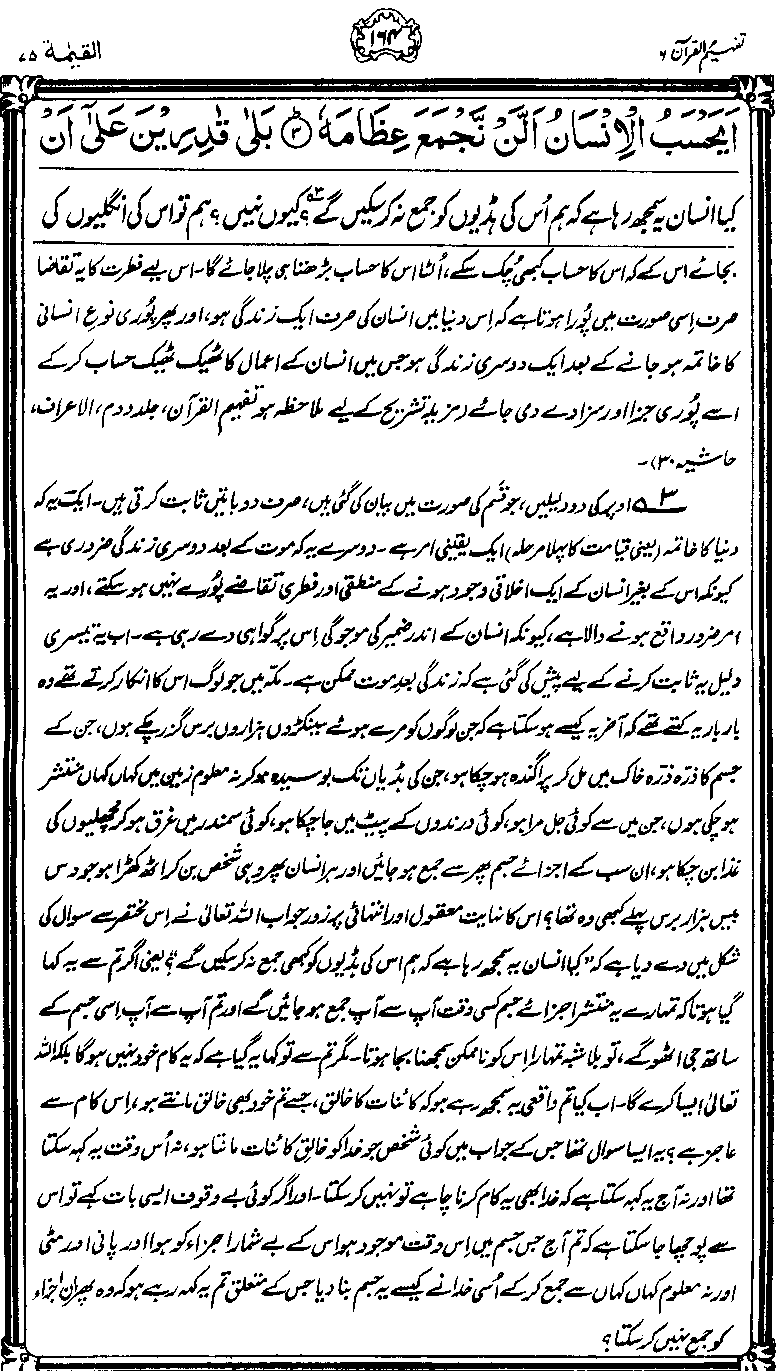 تفہیم القرآن ۶
۱۶۴
القیٰمۃ ۷۵
اَيَحْسَبُ الْاِنْسَانُ اَلَّنْ نَّجْمَعَ عِظَامَهٗ ﴿۳﴾ بَلٰى قٰدِرِيْنَ عَلٰٓى اَنْ
کیا انسان یہ سمجھ رہا ہے کہ ہم اُس کی ہڈیوں کو جمع نہ کر سکیں گے؟۳ کیوں نہیں؟ ہم تو اس کی انگلیوں کی
بجائے اس کے کہ اس کا حساب کبھی چُک سکے، اُلٹا اس کا حساب بڑھتا ہی چلا جائے گا۔ اس لیے فطرت کا یہ تقاضا
صرف اِسی صورت میں پُورا ہوتا ہے کہ اِس دنیا میں انسان کی صرف ایک زندگی ہو، اور پھر پُوری نوعِ انسانی
کا خاتمہ ہو جانے کے بعد ایک دوسری زندگی ہو جس میں انسان کے اعمال کا ٹھیک ٹھیک حساب کر کے
اسے پُوری جزا اور سزا دے دی جائے (مزید تشریح کے لیے ملاحظہ ہو تفہیم القرآن، جلد دوم، الاعراف،
حاشیہ ۳۰)۔
۳ اوپر کی دو دلیلیں، جو قَسم کی صورت میں بیان کی گئی ہیں، صرف دو باتیں ثابت کرتی ہیں۔ ایک یہ کہ
دنیا کا خاتمہ (یعنی قیامت کا پہلا مرحلہ) ایک یقینی امر ہے۔ دوسرے یہ کہ موت کے بعد دوسری زندگی ضروری ہے
کیونکہ اس کے بغیر انسان کے ایک اخلاقی وجود ہونے کے منطقی اور فطری تقاضے پُورے نہیں ہو سکتے، اور یہ
امر ضرور واقع ہونے والا ہے، کیونکہ انسان کے اندر ضمیر کی موجودگی اِس پر گواہی دے رہی ہے۔ اب یہ تیسری
دلیل یہ ثابت کرنے کے لیے پیش کی گئی ہے کہ زندگی بعدِ موت ممکن ہے۔ مکہ میں جو لوگ اس کا انکار کرتے تھے وہ
بار بار یہ کہتے تھے کہ آخر یہ کیسے ہو سکتا ہے کہ جن لوگوں کو مرے ہوئے سینکڑوں ہزاروں برس گزر چکے ہوں، جن کے
جسم کا ذرہ ذرہ خاک میں مل کر پراگندہ ہو چکا ہو، جن کی ہڈیاں تک بوسیدہ ہو کر نہ معلوم زمین میں کہاں کہاں منتشر
ہو چکی ہوں، جن میں سے کوئی جل مرا ہو، کوئی درندوں کے پیٹ میں جا چکا ہو، کوئی سمندر میں غرق ہو کر مچھلیوں کی
غذا بن چکا ہو، ان سب کے اجزائے جسم پھر سے جمع ہو جائیں اور ہر انسان پھر وہی شخص بن کر اٹھ کھڑا ہو جو دس
بیس ہزار برس پہلے کبھی وہ تھا؟ اس کا نہایت معقول اور انتہائی پر زور جواب اللہ تعالیٰ نے اِس مختصر سے سوال کی
شکل میں دے دیا ہے کہ ”کیا انسان یہ سمجھ رہا ہے کہ ہم اس کی ہڈیوں کو کبھی جمع نہ کر سکیں گے“؟ یعنی اگر تم سے یہ کہا
گیا ہوتا کہ تمہارے یہ منتشر اجزائے جسم کسی وقت آپ سے آپ جمع ہو جائیں گے اور تم آپ سے آپ اِسی جسم کے
ساتھ جی اٹھو گے، تو بلا شبہ تمہارا اِس کو ناممکن سمجھنا بجا ہوتا۔ مگر تم سے تو کہا یہ گیا ہے کہ یہ کام خود نہیں ہو گا بلکہ اللہ
تعالیٰ ایسا کرے گا۔ اب کیا تم واقعی یہ سمجھ رہے ہو کہ کائنات کا خالق، جسے تم خود بھی خالق مانتے ہو، اِس کام سے
عاجز ہے؟ یہ ایسا سوال تھا جس کے جواب میں کوئی شخص جو خدا کو خالقِ کائنات مانتا ہو، نہ اُس وقت یہ کہہ سکتا
تھا اور نہ آج یہ کہہ سکتا ہے کہ خدا بھی یہ کام کرنا چاہے تو نہیں کر سکتا۔ اور اگر کوئی بے وقوف ایسی بات کہے تو اس
سے پوچھا جا سکتا ہے کہ تم آج جس جسم میں اِس وقت موجود ہو اس کے بے شمار اجزاء کو ہوا اور پانی اور مٹی
اور نہ معلوم کہاں کہاں سے جمع کر کے اُسی خدا نے کیسے یہ جسم بنا دیا جس کے متعلق تم یہ کہہ رہے ہو کہ وہ پھر اِن اجزاء
کو جمع نہیں کر سکتا؟